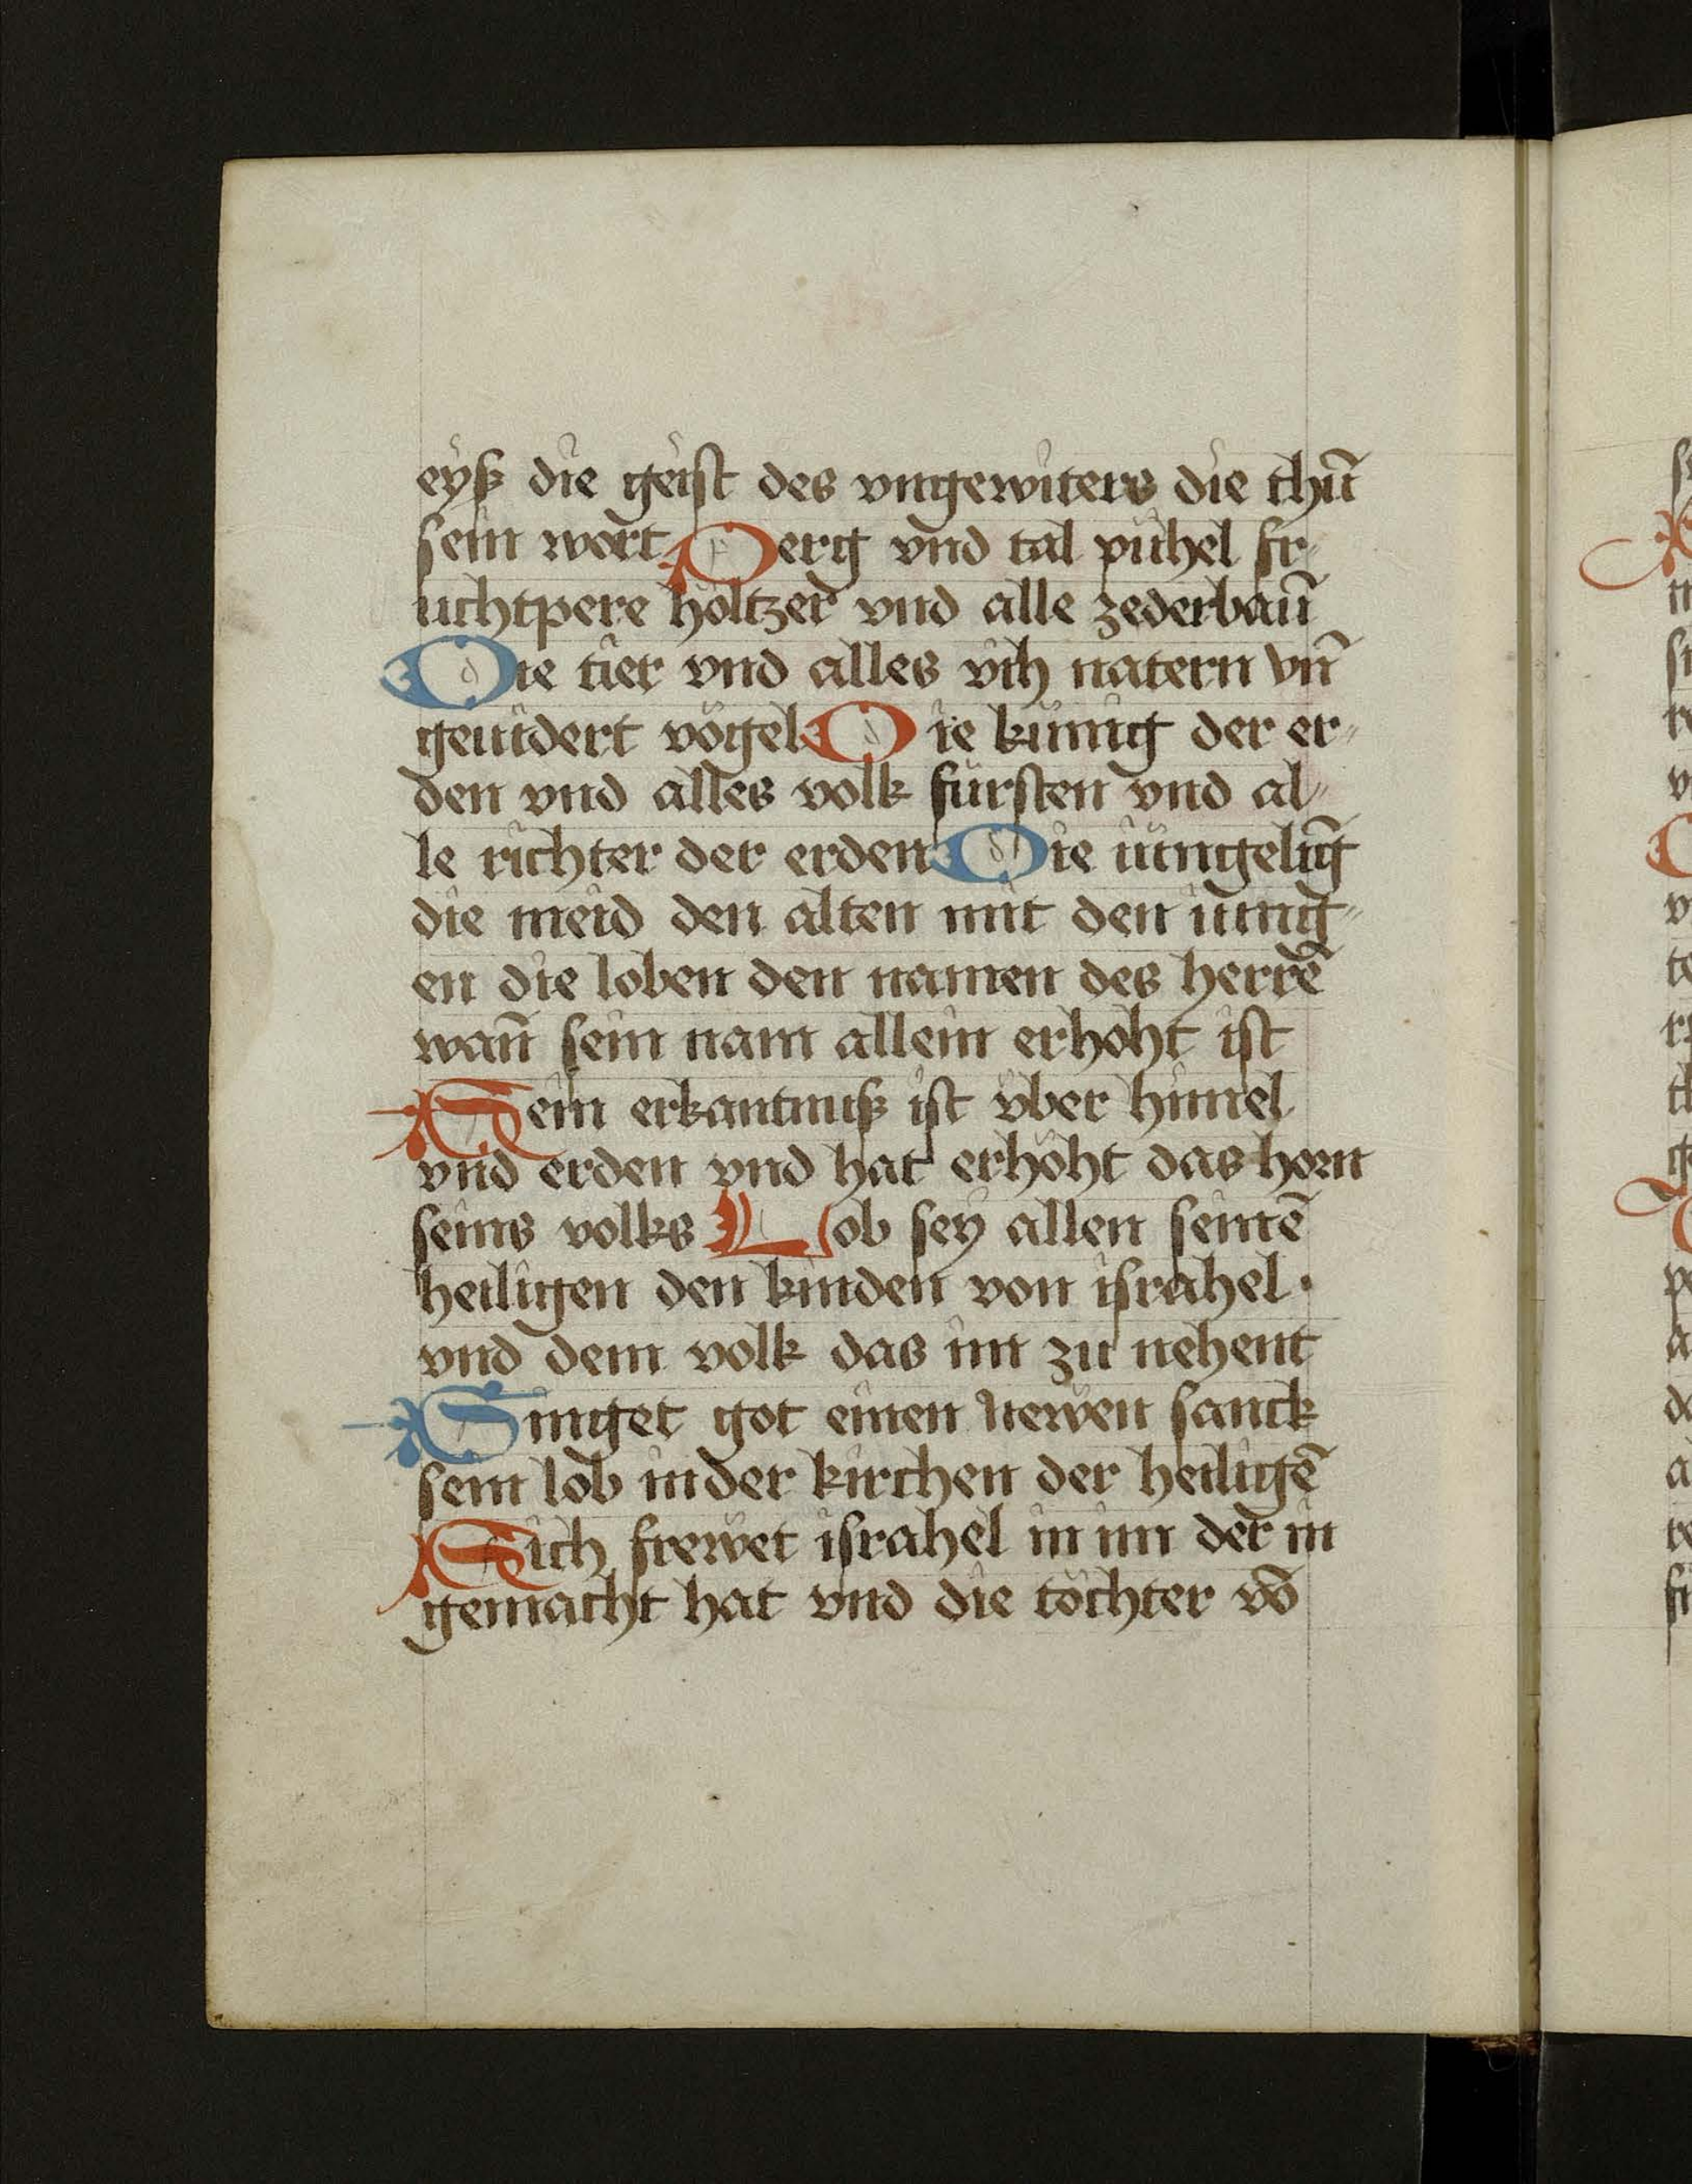 eyß die geist des vngewiters die thū
sein wort Perg vnd tal pühel fr⸗
uchtpere höltzer vnd alle zederbaū
Die tier vnd alles vih natern vn̄
geuidert vögel Die künig der er⸗
den vnd alles volk fürsten vnd al⸗
le richter der erden Die iüngelīg
die meid den alten mit den iung⸗
en die loben den namen des herrē
wan̄ sein nam allein erhöht ist
Sein erkantnuß ist vber himel
vnd erden vnd hat erhöht das horn
seins volks Lob sey allen seinē
heiligen den kinden von israhel ·
vnd dem volk das im zu nehent
Singet got einen newen sanck
sein lob in der kirchen der heiligē
Sich frewet israhel in im der in
gemacht hat vnd die töchter vō